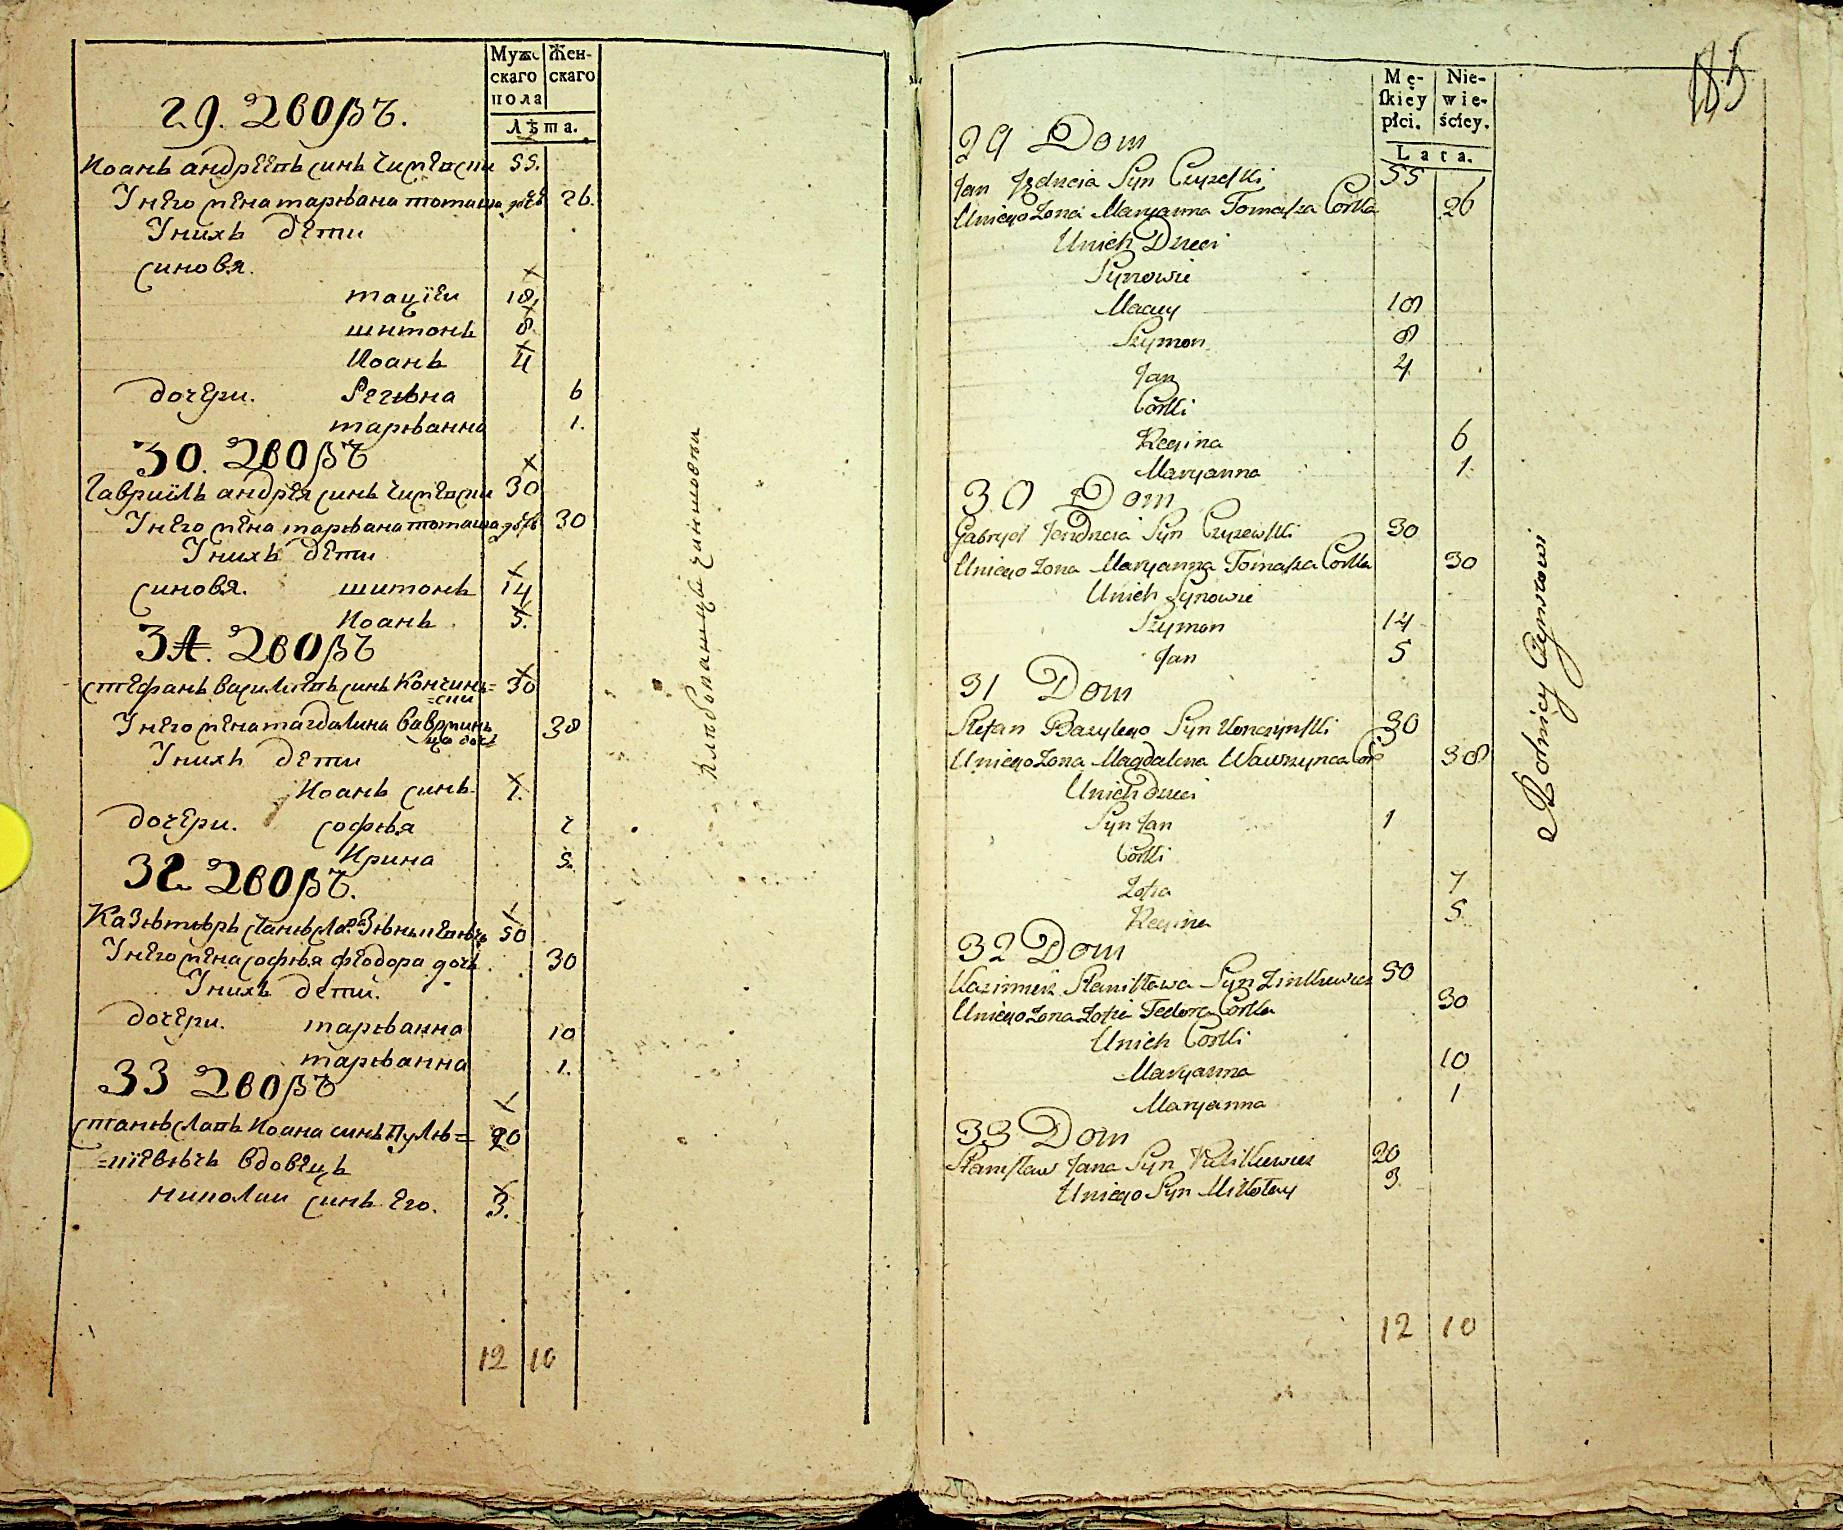 Муже
скаго
пола
Жен-
скаго
Лѣта.
29. Дворъ.
Иоанъ андрѣевъ синъ 55.
У него жена марьвана томаша дочь 26.
У нихъ дети
синовя.
мацїеи 18.
шимонъ 8.
Иоанъ 4
дочери. Регьвна 6
марьванна 1.
30. Дворъ
Гавриїлъ андрея синъ 30
У него жена марьвана томаша дочь 30
У нихъ дети
синовя. шимонъ 14
Иоанъ. 5.
31. Дворъ
стефанъ василевъ синъ Кончинь= 30
=ски
У него жена магдалина Вавринь 38
ца дочь
У нихъ дети
Иоанъ синъ 1.
дочери. софья 7
Ирина 5.
32. Дворъ.
Казьмиръ 50
У него жена софья феодора дочь. 30
У нихъ дети.
дочери. марьванна 10
марьванна 1.
33 Дворъ
станьславъ Иоана синъ Пуль= 20
=кїевьчъ вдовецъ
николаи синъ его. 3.
12 10
хлѣбопашци чиншовы
185
Mę-
skiey
płci.
Nie-
wie-
ściey.
Lata.
29 Dom
Jan Jędrzeia Syn Czyżeski 55
Uniego Zona Maryanna Tomasza Corka 26
Unich Dzieci
Synowie
Maciey 18
Szymon 8
Jan 4
Corki
Regina 6
Maryanna 1.
30 Dom
Gabryel Jendrzeia Syn Czyzewski 30
Uniego Zona Maryanna Tomasza Corka 30
Unich Synowie
Szymon 14
Jan 5
31 Dom
Stefan Bazylego Syn Konczynski 30
Uniego Zona Magdalena Wawrzynca Cor 38
Unich dzieci
Syn Jan 1
Corki
Zofia 7
Regina 5
32 Dom
Kazimierz Stanisława Syn Zinkiewicz 50
Uniego Zona Zofia Fedora Corka 30
Unich Corki
Maryanna 10
Maryanna 1
33 Dom
Stanisław Jana Syn Pulikiewicz 20
Uniego Syn Mikołay 3
12 10
Rolnicy Czynszowi